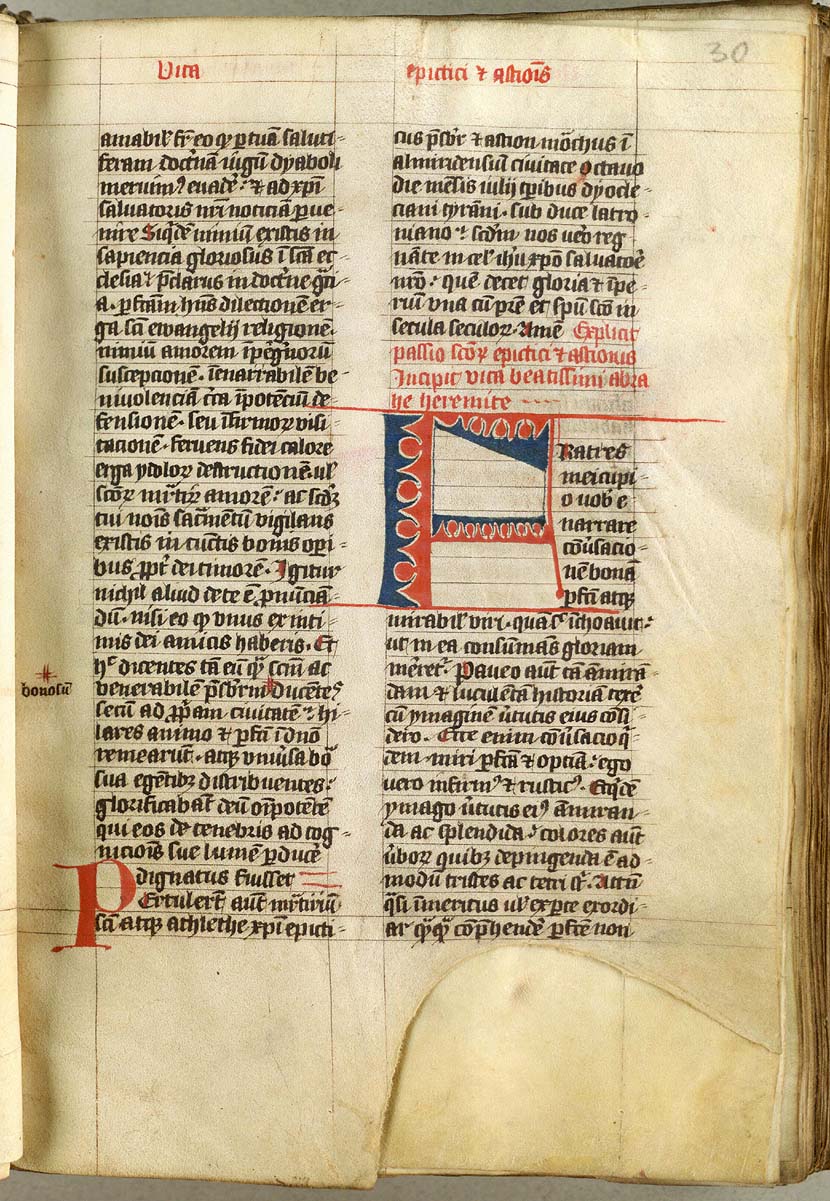 30
Vita
epictici ⁊ astiōis
amabiłꝭ fr̄ eo ꝙ ꝑ tuā saluti-
feram doct'nā iugū dyaboli
meruimꝰ euadeꝛ̄ · ⁊ ad xp̄i
saluatoris nr̄i noticiā ꝑue-
nire Siq̇dem nimiū existis in
sapiencia gloriosus ī sc̄a ec-
clesia p̄clarus in doct'ne gr̄ati-
a · ꝑfc̄am huīs dilectionē er-
ga sc̄i ewangelij religionē
nimiū amorem ī ꝑeg'noꝛū
suscepcionē · īenarrabilē be-
niuolenciā c̄ca īpotenciū de-
fensionē · seu īfirmoꝝ visi-
tacionē · feruens fidei calore
erga ydoloꝝ destructionē · uł
sc̄oꝝ mr̄tiꝝ amorē · ac
tui noīs sac̄mentū vigilans
existis in cunctis bonis oꝑi-
bus ꝓpt' dei timorē · Igitur
nichil aliud de te ē ꝓnūciā-
dū · nisi eo ꝙ vnus ex inti-
mis dei amicis haberis · Et
hͨ dicentes tā eū q̄ꝫ sc̄m ac
venerabilē p̄sbrm Ducentes
bonosū
secū ad ꝓp̄am ciuitatē · hi-
lares animo ⁊ ꝑfc̄i ī dn̄o
remearūt · atqꝫ vniūsa bōa
sua egētibꝫ distribuentes ·
glorificabāt deū oīpotētē
qui eos de tenebris ad cog-
nicioīs sue lumē ꝑduceꝛ̄
dignatus fuisset
Pertulerūt aūt mr̄tiriū
sc̄i atqꝫ athlethe xp̄i epicti-
cus p̄sbr ⁊ astion mōchus ī
almiridensiū ciuitate octauo
die mēsis iulij tꝑibus dyocle-
ciani tyrāni · sub duce latro-
niano · scdm̄ nos uero reg
nāte in celꝭ ih̄u xp̄o saluatoē
nr̄o · quē decet gloria ⁊ īpe-
riū vna cū pr̄e et sp̄u sc̄o in
secula seculoꝝ · Amē Explicit
passio sc̄oꝝ epictici ⁊ astionis
Incipit vita beatissimi abra
he heremite
FRatres
mei cupi-
o uob e
narrare
cōūsacio-
nē bonā
ꝑfc̄i atqꝫ
mirabilꝭ viri · quā sͥ īchoauit
ut in ea consumās gloriam
mēretꝛ · Paueo aūt tā āmirā-
dam ⁊ luculentā historiā texeꝛ̄
cū ymaginē ūtutis eius cōsi-
dero · Etce enim cōūsacio q̇-
dem · miri ꝑfc̄a ⁊ optīa · ego
uero infirmꝰ ⁊ rusticꝰ · Etq̇dē
ymago ūtutis eiꝰ āmiran-
da ac splendida · colores aūt
ūboꝝ quibꝫ depingenda ē ad-
modū tristes ac tetri sͭ · Attn̄
q̄si īmeritus uł ex ꝑte exordi-
ar q̄ꝫq̄ꝫ cōp̄hendeꝛ̄ ꝑfc̄e non